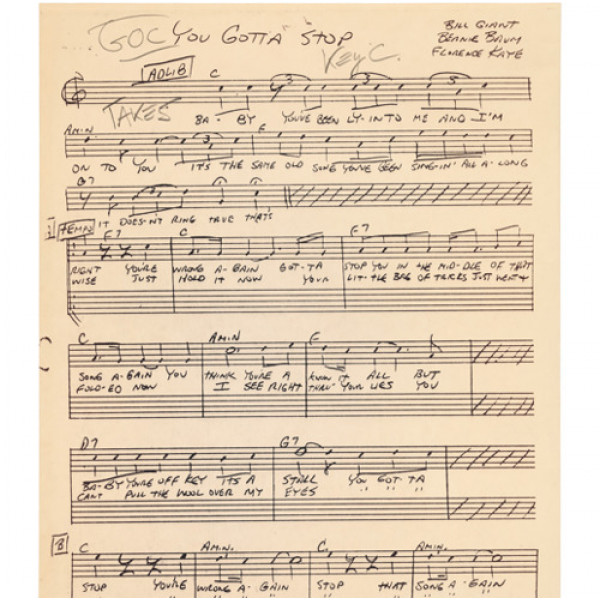 GOC YOU GOTTA STOP
BILL GIANT
BERNIE BAUM
FLORENCE KAYE
KEY C.
ADLIB C
3 3
TAKES
BA - BY YOU'VE BEEN LY-IN TO ME AND I'M
AMIN F
3
ON TO YOU IT'S THE SAME OLD SONG YOU'VE BEEN SING-IN' ALL A-LONG
G7
IT DOES-N'T RING TRUE THAT'S
TEMPO F7 C F7
RIGHT YOU'RE WRONG A-GAIN GOT-TA STOP YOU IN THE MID-DLE OF THAT
WISE JUST HOLD IT NOW YOUR LIT-TLE BAG OF TRICKS JUST WENT &
C AMIN F
SONG A-GAIN YOU THINK YOU'RE A KNOW IT ALL BUT
FOLD-ED NOW I SEE RIGHT THRU' YOUR LIES YOU
D7 G7
BA-BY YOU'RE OFF KEY IT'S A STALL YOU GOT-TA
CAN'T PULL THE WOOL OVER MY EYES " " "
B C AMIN. C. AMIN.
STOP YOU'RE WRONG A-GAIN STOP THAT SONG A-GAIN